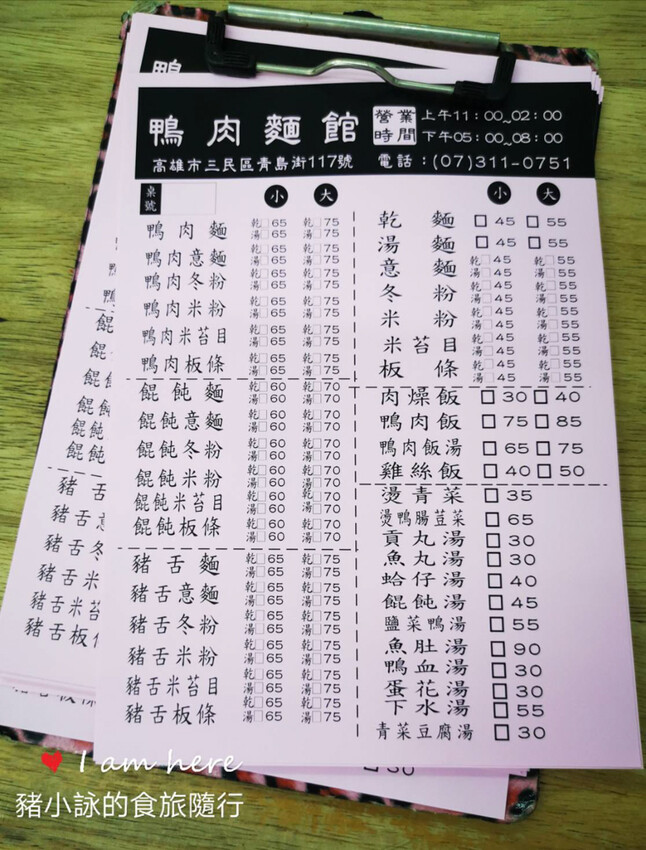 鴨肉麵館
營業時間
上午11：00~02：00
下午05：00~08：00
高雄市三民區青島街117號 電話：(07)311-0751
桌號 小 大
鴨肉麵 乾□65 乾□75
湯□65 湯□75
鴨肉意麵 乾□65 乾□75
湯□65 湯□75
鴨肉冬粉 乾□65 乾□75
湯□65 湯□75
鴨肉米粉 乾□65 乾□75
湯□65 湯□75
鴨肉米苔目 乾□65 乾□75
湯□65 湯□75
鴨肉板條 乾□65 乾□75
湯□65 湯□75
餛飩麵 乾□60 乾□70
湯□60 湯□70
餛飩意麵 乾□60 乾□70
湯□60 湯□70
餛飩冬粉 乾□60 乾□70
湯□60 湯□70
餛飩米粉 乾□60 乾□70
湯□60 湯□70
餛飩米苔目 乾□60 乾□70
湯□60 湯□70
餛飩板條 乾□60 乾□70
湯□60 湯□70
豬舌麵 乾□65 乾□75
湯□65 湯□75
豬舌意麵 乾□65 乾□75
湯□65 湯□75
豬舌冬粉 乾□65 乾□75
湯□65 湯□75
豬舌米粉 乾□65 乾□75
湯□65 湯□75
豬舌米苔目 乾□65 乾□75
湯□65 湯□75
豬舌板條 乾□65 乾□75
湯□65 湯□75
小 大
乾麵 □45 □55
湯麵 □45 □55
意麵 乾□45 乾□55
湯□45 湯□55
冬粉 乾□45 乾□55
湯□45 湯□55
米粉 乾□45 乾□55
湯□45 湯□55
米苔目 乾□45 乾□55
湯□45 湯□55
板條 乾□45 乾□55
湯□45 湯□55
肉燥飯 □30 □40
鴨肉飯 □75 □85
鴨肉飯湯 □65 □75
雞絲飯 □40 □50
燙青菜 □35
燙鴨腸荳菜 □65
貢丸湯 □30
魚丸湯 □30
蛤仔湯 □40
餛飩湯 □45
鹽菜鴨湯 □55
魚肚湯 □90
鴨血湯 □30
蛋花湯 □30
下水湯 □55
青菜豆腐湯 □30
鴨
鴨
餛
餛
餛飩
餛飩
餛飩
餛飩
豬舌
豬舌意
豬舌冬
豬舌米
豬舌米苔
豬舌板
□30
I am here
豬小詠的食旅隨行